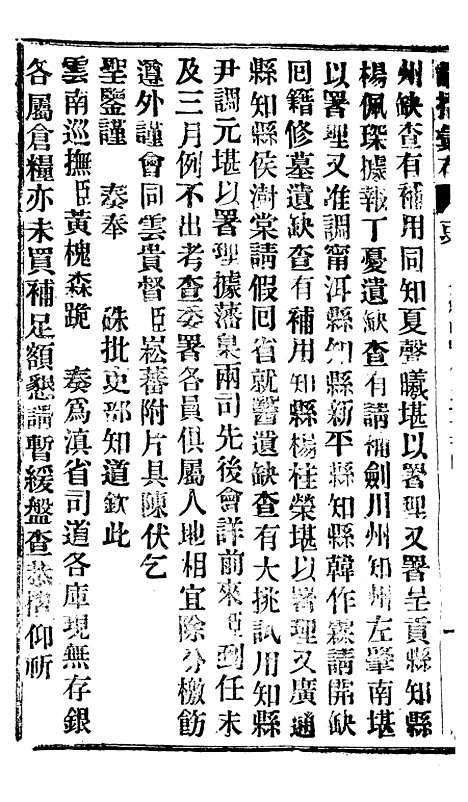 州缺查有補用同知夏聲曦堪以署理又署呈貢縣知縣
楊佩琛據報丁憂遺缺查有請補劍川州知州左肇南堪
以署理又准調甯洱縣知縣新平縣知縣韓作霖請開缺
回籍修墓遺缺查有補用知縣楊柱榮堪以署理又廣通
縣知縣侯澍棠請假回省就醫遺缺查有大挑試用知縣
尹調元堪以署理據藩臬兩司先後會詳前來臣到任未
及三月例不出考查委署各員俱屬人地相宜除分檄飭
遵外謹會同雲貴督臣崧蕃附片具陳伏乞
聖鑒謹 奏奉 硃批吏部知道欽此
雲南巡撫臣黃槐森跪 奏爲滇省司道各庫現無存銀
各屬倉糧亦未買補足額懇請暫緩盤查恭摺仰祈